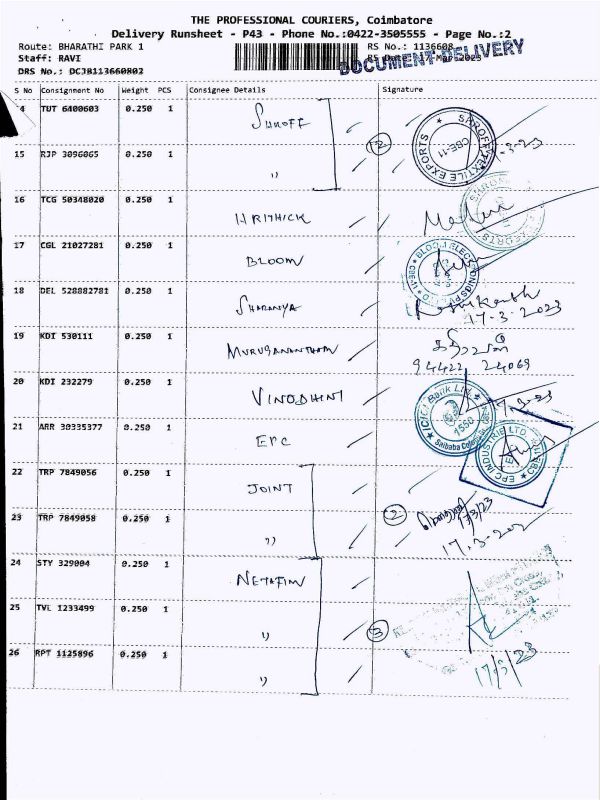 THE PROFESSIONAL COURIERS, Coimbatore
Delivery Runsheet - P43 - Phone No.:0422-3505555 - Page No.:2
Route: BHARATHI PARK 1 RS No.: 1136608
Staff: RAVI RS Date: 17-Mar-2023
DRS No.: DCJB113660802
DOCUMENT DELIVERY
S No Consignment No Weight PCS Consignee Details Signature
4 TUT 6400603 0.250 1 SAROFF
15 RJP 3096065 0.250 1 " 2 -3-23
CBE-11
16 TCG 50348020 0.250 1 HRITHICK
17 CGL 21027281 0.250 1 BLOOM
18 DEL 528882781 0.250 1 SHARANYA
17-3-2023
19 KDI 530111 0.250 1 MURUGANANTHAM
94422 24069
20 KDI 232279 0.250 1 VINODHINI 17-3-23
ICICI Bank Ltd.
1550
21 ARR 30335377 0.250 1 EPC
EPC INDUSTRIE LTD
22 TRP 7849056 0.250 1 JOINT
17/3/23
23 TRP 7849058 0.250 1 " 2
17-3-202
24 STY 329004 0.250 1 NETAFIM
25 TVL 1233499 0.250 1 " 3
26 RPT 1125896 0.250 1 " 17/3/23